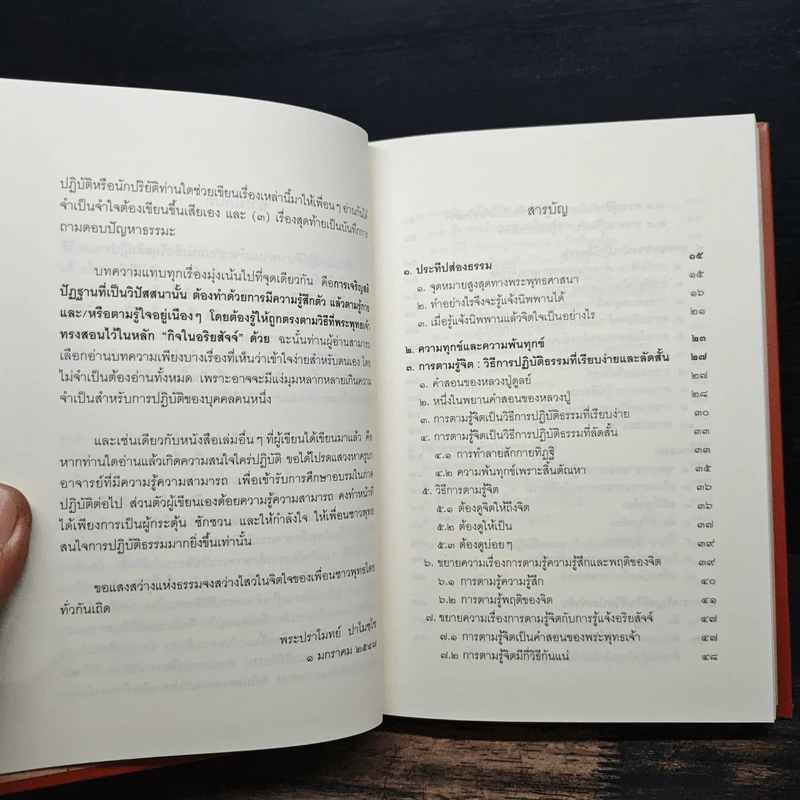 ปฏิบัติหรือนักปริยัติท่านใดช่วยเขียนเรื่องเหล่านี้มาให้เพื่อนๆ อ่านกันได้
จำเป็นจำใจต้องเขียนขึ้นเสียเอง และ (๓) เรื่องสุดท้ายเป็นบันทึกการ
ถามตอบปัญหาธรรมะ
บทความแทบทุกเรื่องมุ่งเน้นไปที่จุดเดียวกัน คือการเจริญสติ
ปัฏฐานที่เป็นวิปัสสนานั้น ต้องทำด้วยการมีความรู้สึกตัว แล้วตามรู้กาย
และ/หรือตามรู้ใจอยู่เนืองๆ โดยต้องรู้ให้ถูกตรงตามวิธีที่พระพุทธเจ้า
ทรงสอนไว้ในหลัก "กิจในอริยสัจจ์" ด้วย ฉะนั้นท่านผู้อ่านสามารถ
เลือกอ่านบทความเพียงบางเรื่องที่เห็นว่าเข้าใจง่ายสำหรับตนเอง โดย
ไม่จำเป็นต้องอ่านทั้งหมด เพราะอาจจะมีแง่มุมหลากหลายเกินความ
จำเป็นสำหรับการปฏิบัติของบุคคลคนหนึ่ง
และเช่นเดียวกับหนังสือเล่มอื่นๆ ที่ผู้เขียนได้เขียนมาแล้ว คือ
หากท่านใดอ่านแล้วเกิดความสนใจใคร่ปฏิบัติ ขอได้โปรดแสวงหาครูบา
อาจารย์ที่มีความรู้ความสามารถ เพื่อเข้ารับการศึกษาอบรมในภาค
ปฏิบัติต่อไป ส่วนตัวผู้เขียนเองด้อยความรู้ความสามารถ คงทำหน้าที่
ได้เพียงการเป็นผู้กระตุ้น ชักชวน และให้กำลังใจ ให้เพื่อนชาวพุทธ
สนใจการปฏิบัติธรรมมากยิ่งขึ้นเท่านั้น
ขอแสงสว่างแห่งธรรมจงสว่างไสวในจิตใจของเพื่อนชาวพุทธโดย
ทั่วกันเถิด
พระปราโมทย์ ปาโมชฺโช
๑ มกราคม ๒๕๔๗
สารบัญ
๑. ประทีปส่องธรรม ๑๕
๑. จุดหมายสูงสุดทางพระพุทธศาสนา ๑๕
๒. ทำอย่างไรจึงจะรู้แจ้งนิพพานได้ ๑๖
๓. เมื่อรู้แจ้งนิพพานแล้วจิตใจเป็นอย่างไร ๒๑
๒. ความทุกข์และความพ้นทุกข์ ๒๓
๓. การตามรู้จิต : วิธีการปฏิบัติธรรมที่เรียบง่ายและลัดสั้น ๒๗
๑. คำสอนของหลวงปู่ดูลย์ ๒๗
๒. หนึ่งในพยานคำสอนของหลวงปู่ ๒๘
๓. การตามรู้จิตเป็นวิธีการปฏิบัติธรรมที่เรียบง่าย ๓๐
๔. การตามรู้จิตเป็นวิธีการปฏิบัติธรรมที่ลัดสั้น ๓๓
๔.๑ การทำลายสักกายทิฏฐิ ๓๓
๔.๒ ความพ้นทุกข์เพราะสิ้นตัณหา ๓๕
๕. วิธีการตามรู้จิต ๓๖
๕.๑ ต้องดูจิตให้ถึงจิต ๓๖
๕.๒ ต้องดูให้เป็น ๓๗
๕.๓ ต้องดูบ่อยๆ ๓๙
๖. ขยายความเรื่องการตามรู้ความรู้สึกและพฤติของจิต ๓๙
๖.๑ การตามรู้ความรู้สึก ๔๐
๖.๒ การตามรู้พฤติของจิต ๔๑
๗. ขยายความเรื่องการตามรู้จิตกับการรู้แจ้งอริยสัจจ์ ๔๗
๗.๑ การตามรู้จิตเป็นคำสอนของพระพุทธเจ้า ๔๗
๗.๒ การตามรู้จิตมีกี่วิธีกันแน่ ๔๘